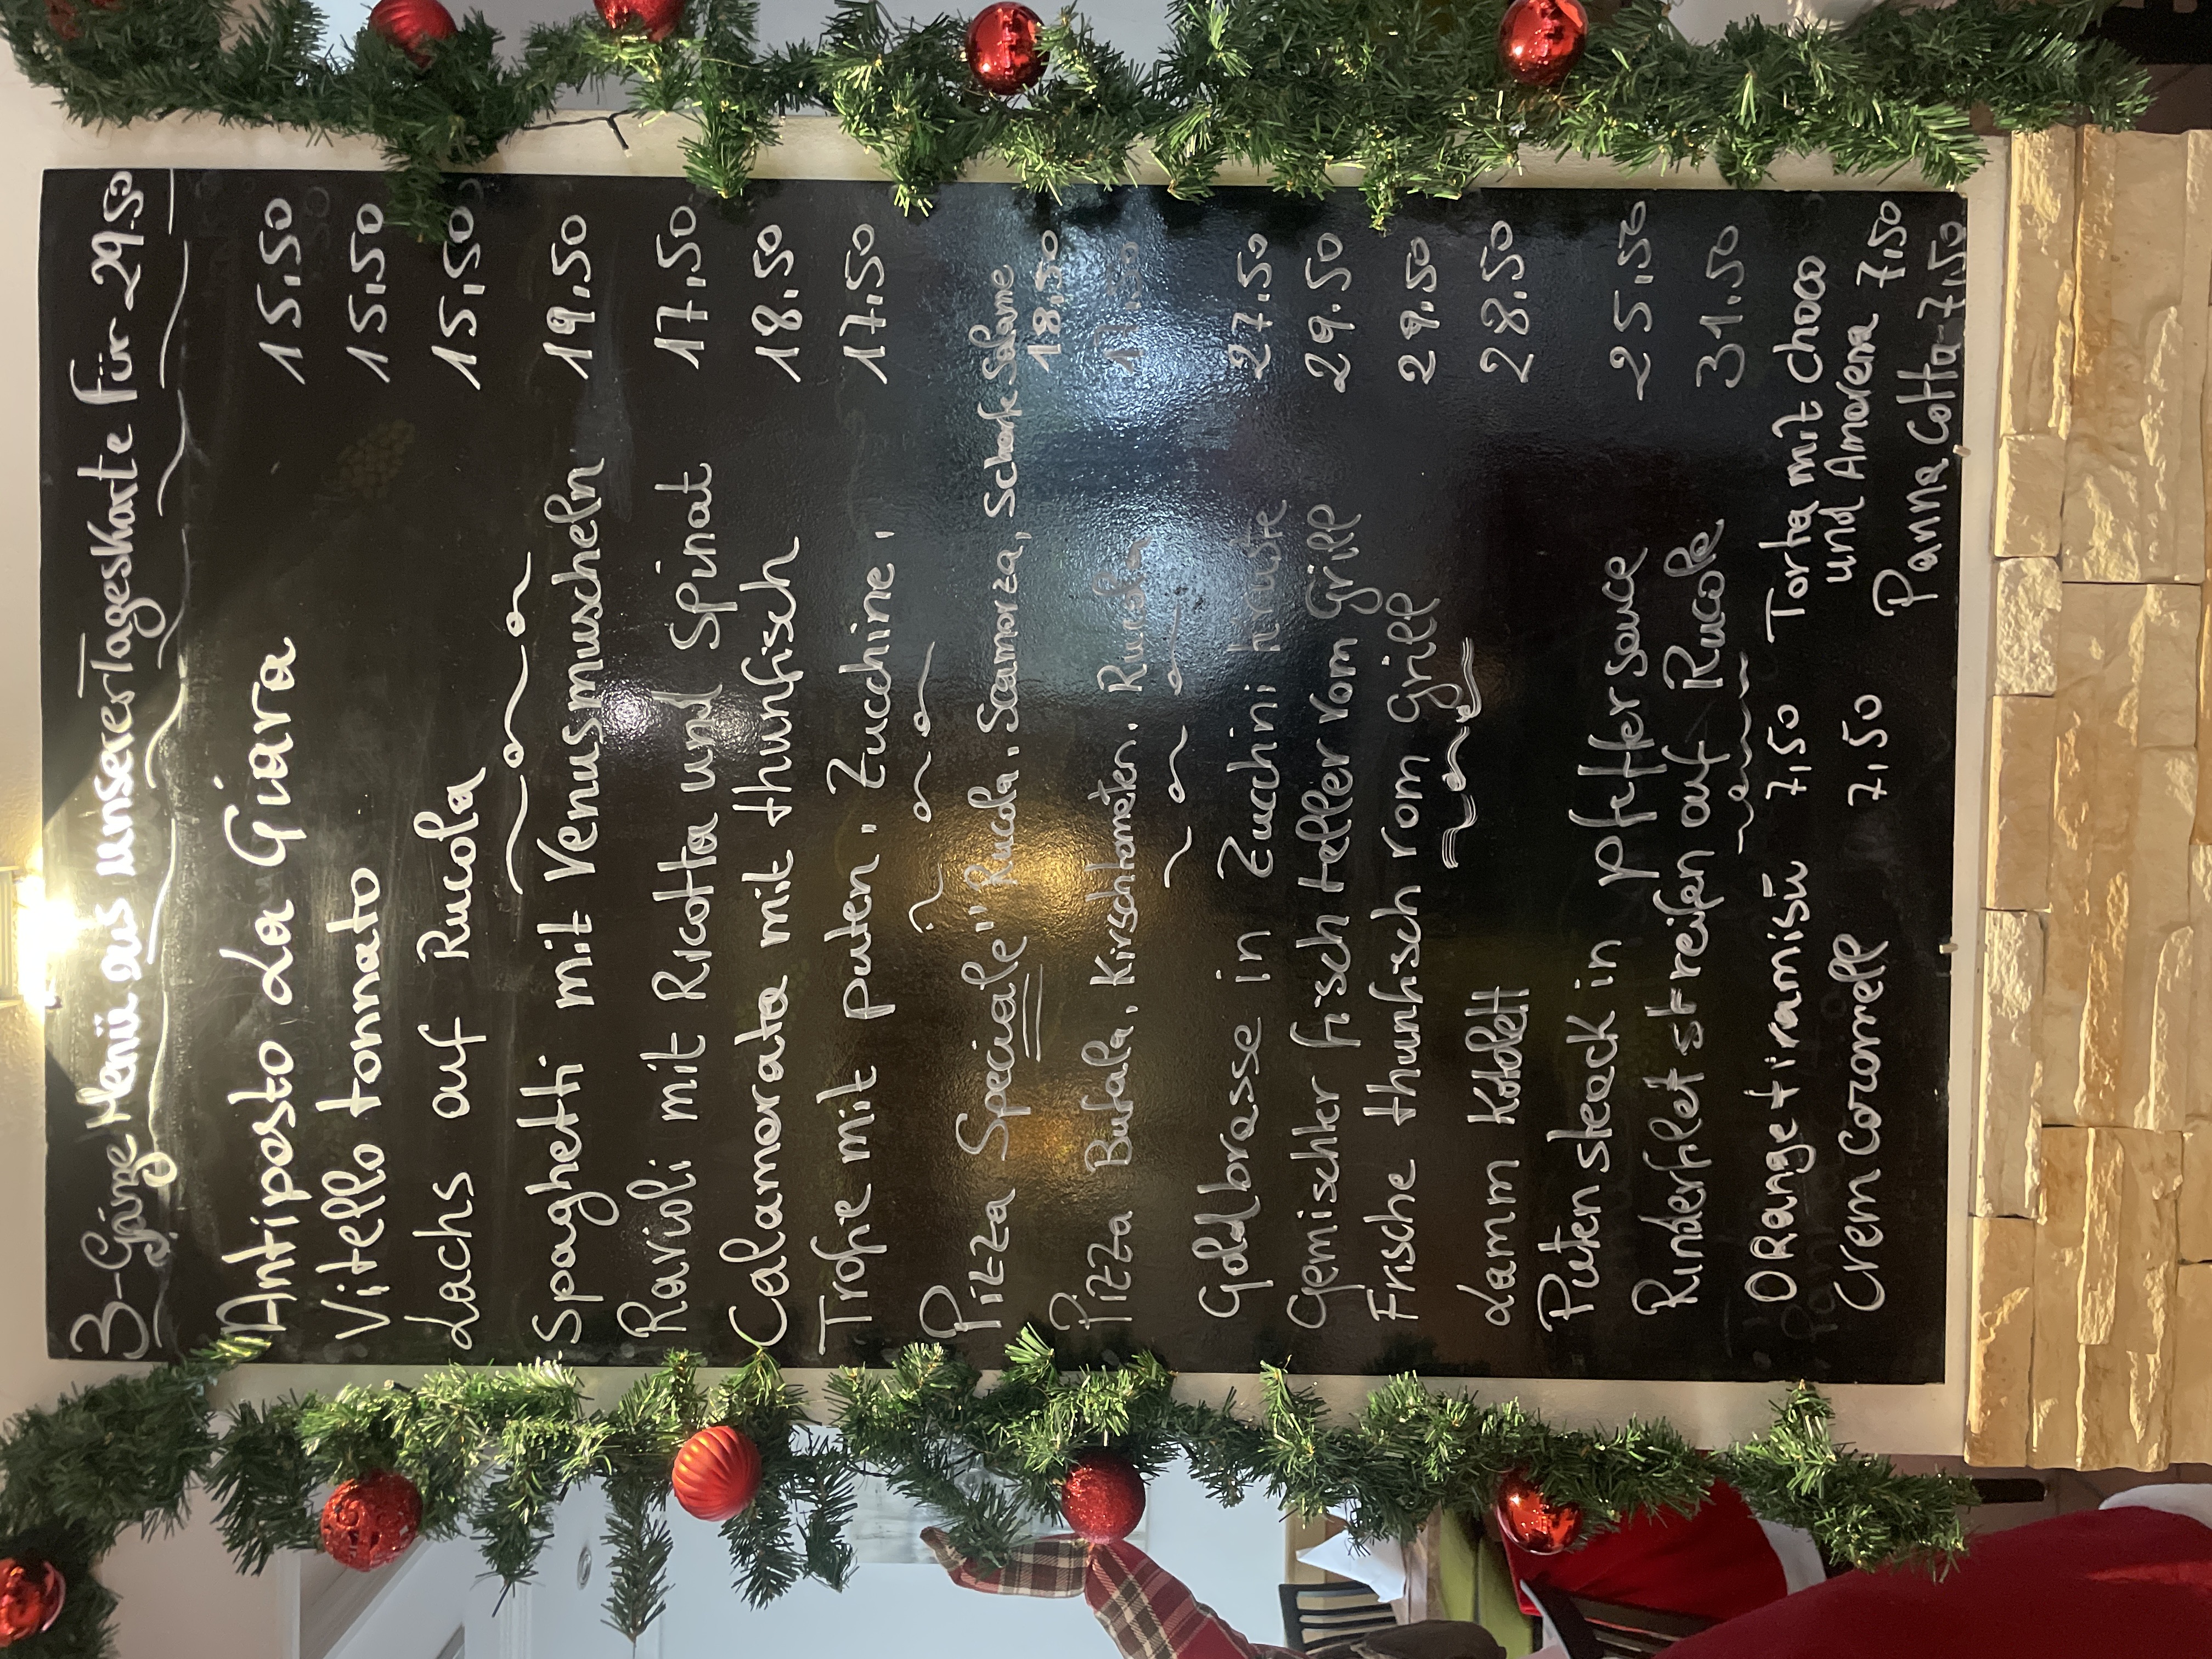 3-Gänge Menü aus unserer Tageskarte für 29.50
Antipasto La Giara 15,50
Vitello tonnato 15,50
Lachs auf Rucola 15,50
Spaghetti mit Venusmuscheln 19,50
Ravioli mit Ricotta und Spinat 17,50
Calamarata mit thunfisch 18,50
Trofie mit puten, Zucchine, 17,50
Pizza Speciale" Rucola, Scamorza, Scharfe Salame 18,50
Pizza Bufala, Kirschtomaten, Rucola 17,50
Goldbrasse in Zucchini kruste 27,50
Gemischter fisch teller vom Grill 29.50
Frische thunfisch vom Grill 29.50
Lamm Kotelett 28.50
Puten steack in pfeffersauce 25,50
Rinderfilet streifen auf Rucole 31.50
ORange tiramisù 7,50
Crem Coramell 7,50
Torta mit choco
und Amarena 7,50
Panna Cotta 7,50